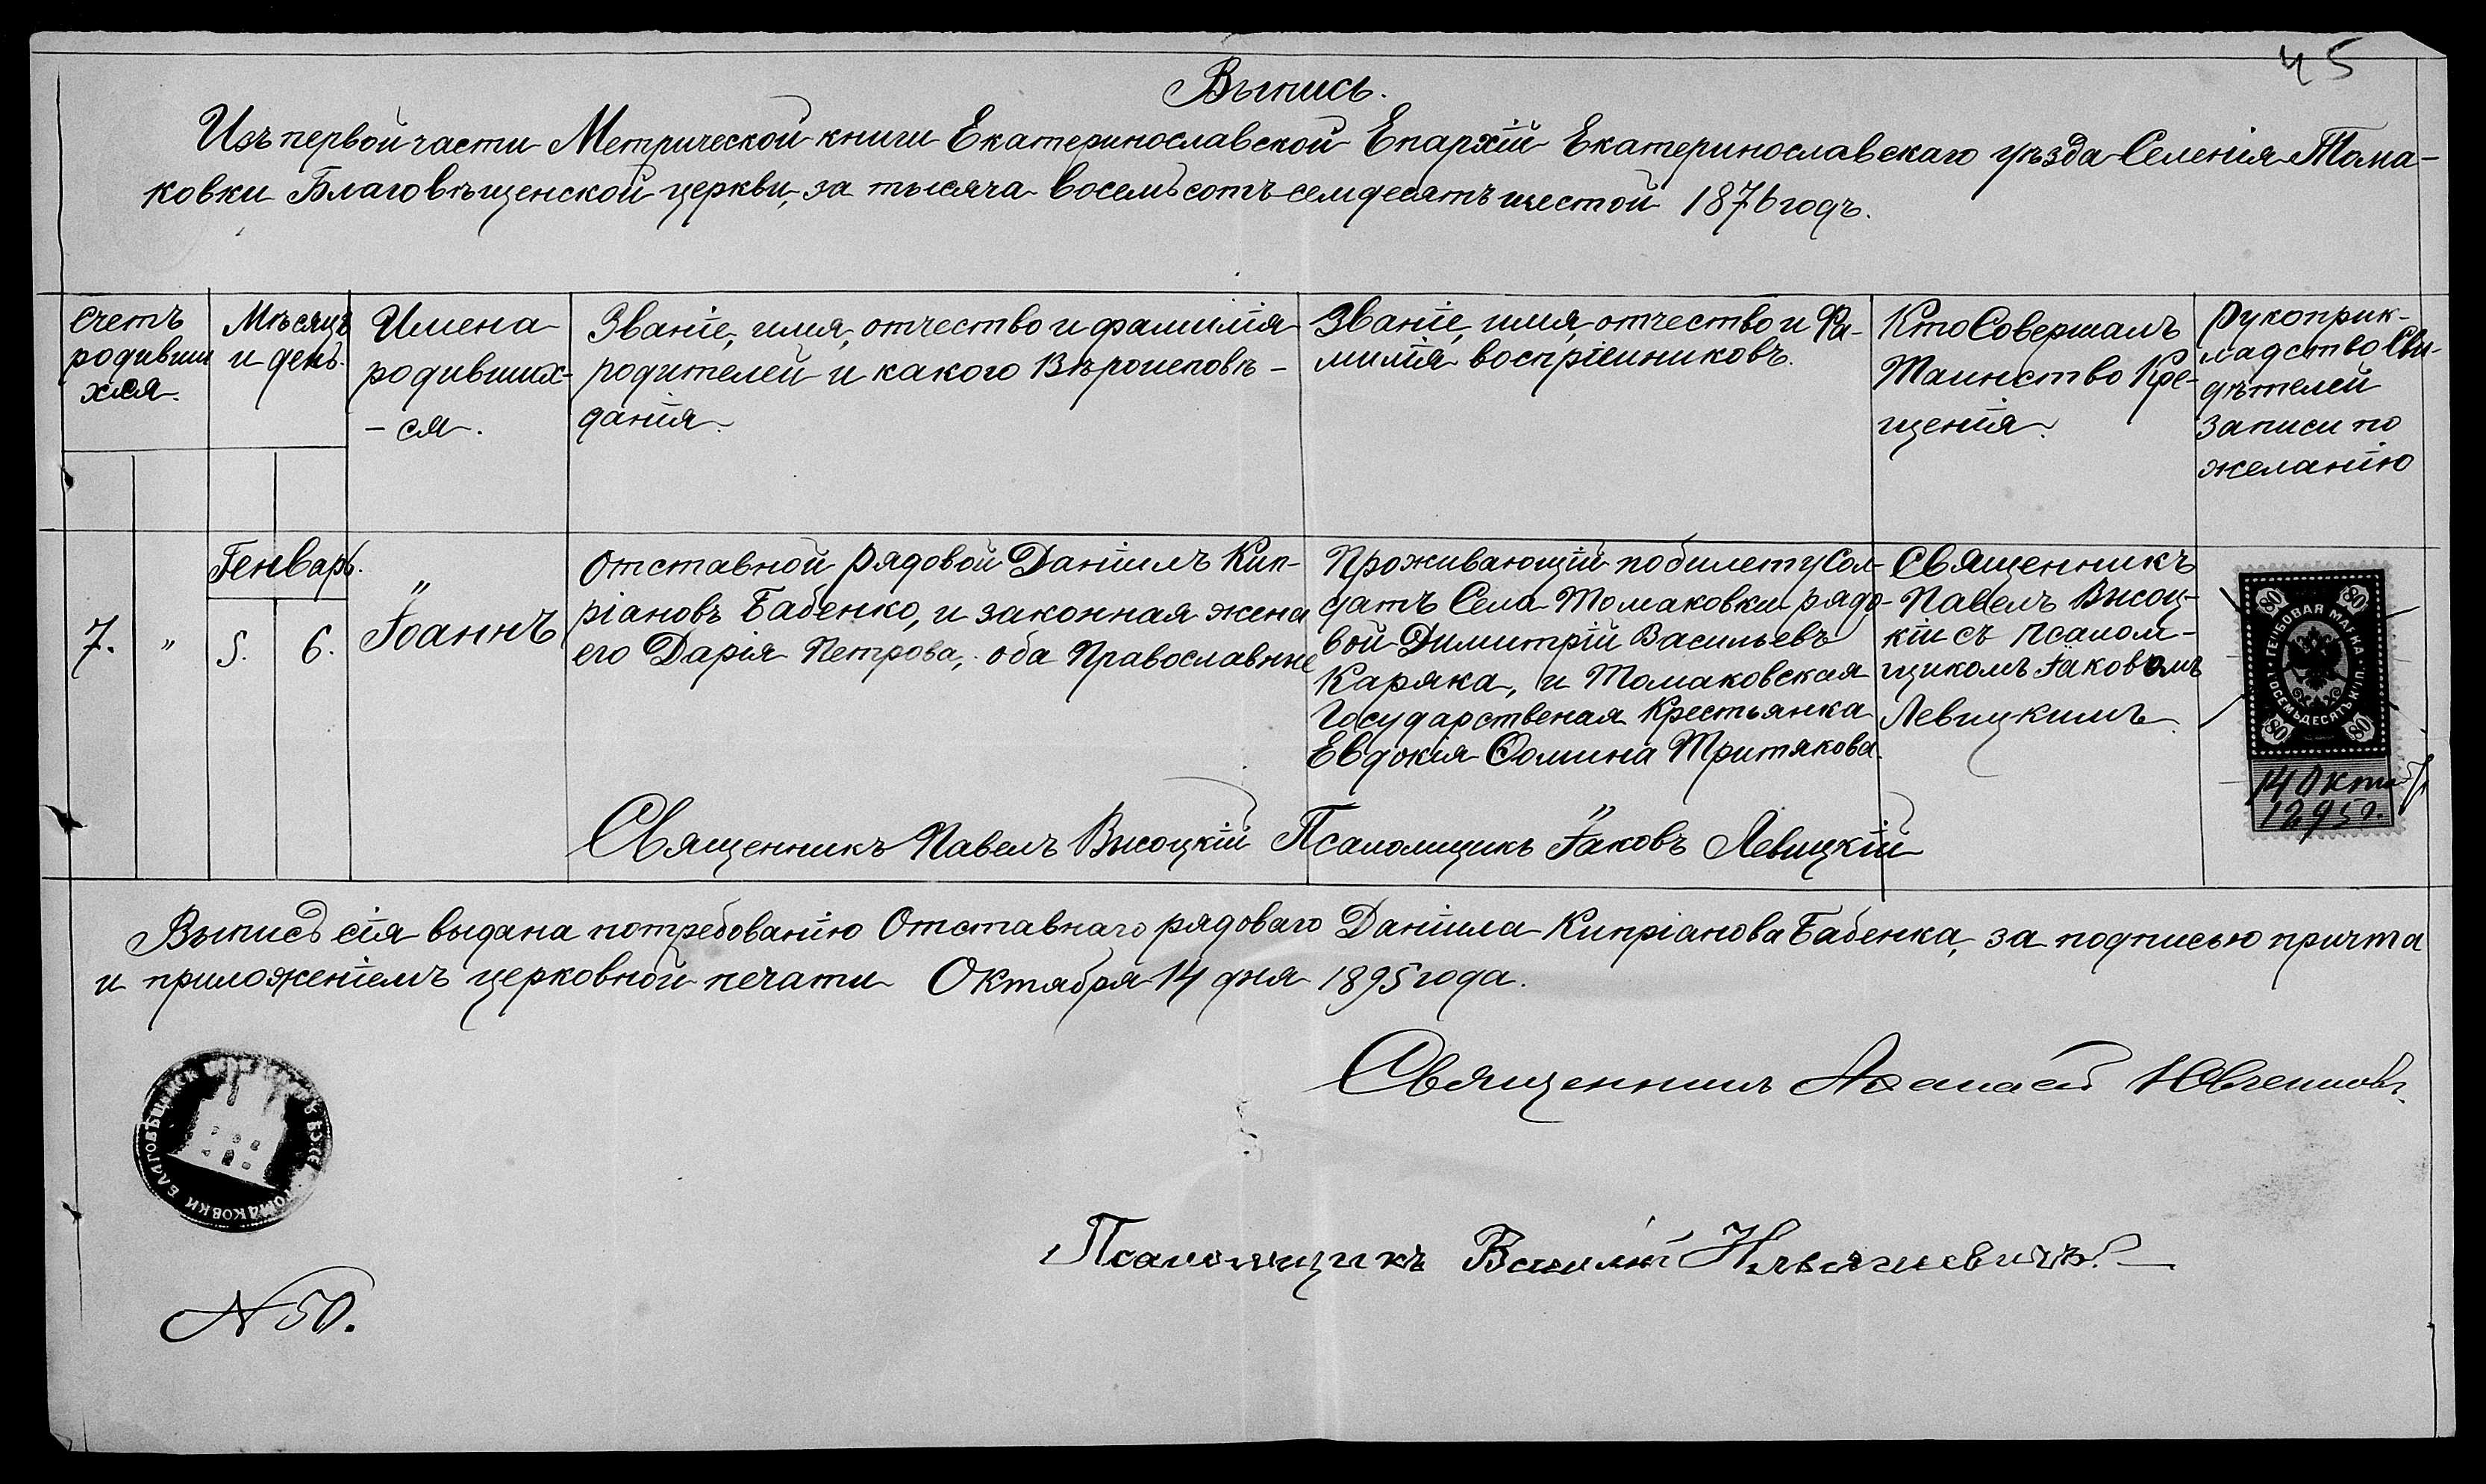 45
Выпись.
Изъ первой части Метрической книги Екатеринославской Епархіи Екатеринославскаго уѣзда Селенія Тома-
ковки Благовѣщенской церкви, за тысяча восемьсотъ семдесятъ шестой 1876 годъ.
Счетъ
родивши
хся.
Мѣсяцъ
и день.
Имена
родивших-
- ся.
Званіе, имя, отчество и фамилія
родителей и какого Вѣроисповѣ-
данія.
Званіе, имя, отчество и Фа-
милія воспріемниковъ.
Кто Совершалъ
Таинство Кре-
щенія.
Рукоприк-
ладство Сви-
дѣтелей
записи по
желанію
7.
"
Генварь.
5.
6.
Іоаннъ
Отставной рядовой Даніилъ Кип-
ріановъ Бабенко, и законная жена
его Дарія Петрова, оба Православные
Проживающій по билету Сол-
датъ Села Томаковки рядо-
вой Димитрій Васильевъ
Каряка, и Томаковская
Государственая Крестьянка
Евдокія Ѳомина Тритякова.
Священникъ
Павелъ Высоц-
кій съ Псалом-
щикомъ Іаковомъ
Левицкимъ
ГЕРБОВАЯ МАРКА
ВОСЕМЬДЕСЯТЪ КОП.
80 80
80 80
14 Октяб
1895 г.
Священникъ Павелъ Высоцкій Псаломщикъ Іаковъ Левицкій
Выпись сія выдана по требованію Отставнаго рядоваго Даніила Кипріанова Бабенка, за подписью причта
и приложеніемъ церковной печати Октября 14 дня 1895 года.
Священникъ
ТОМАКОВКИ БЛАГОВѢЩЕНСК
Псаломщикъ Василій
N 50.